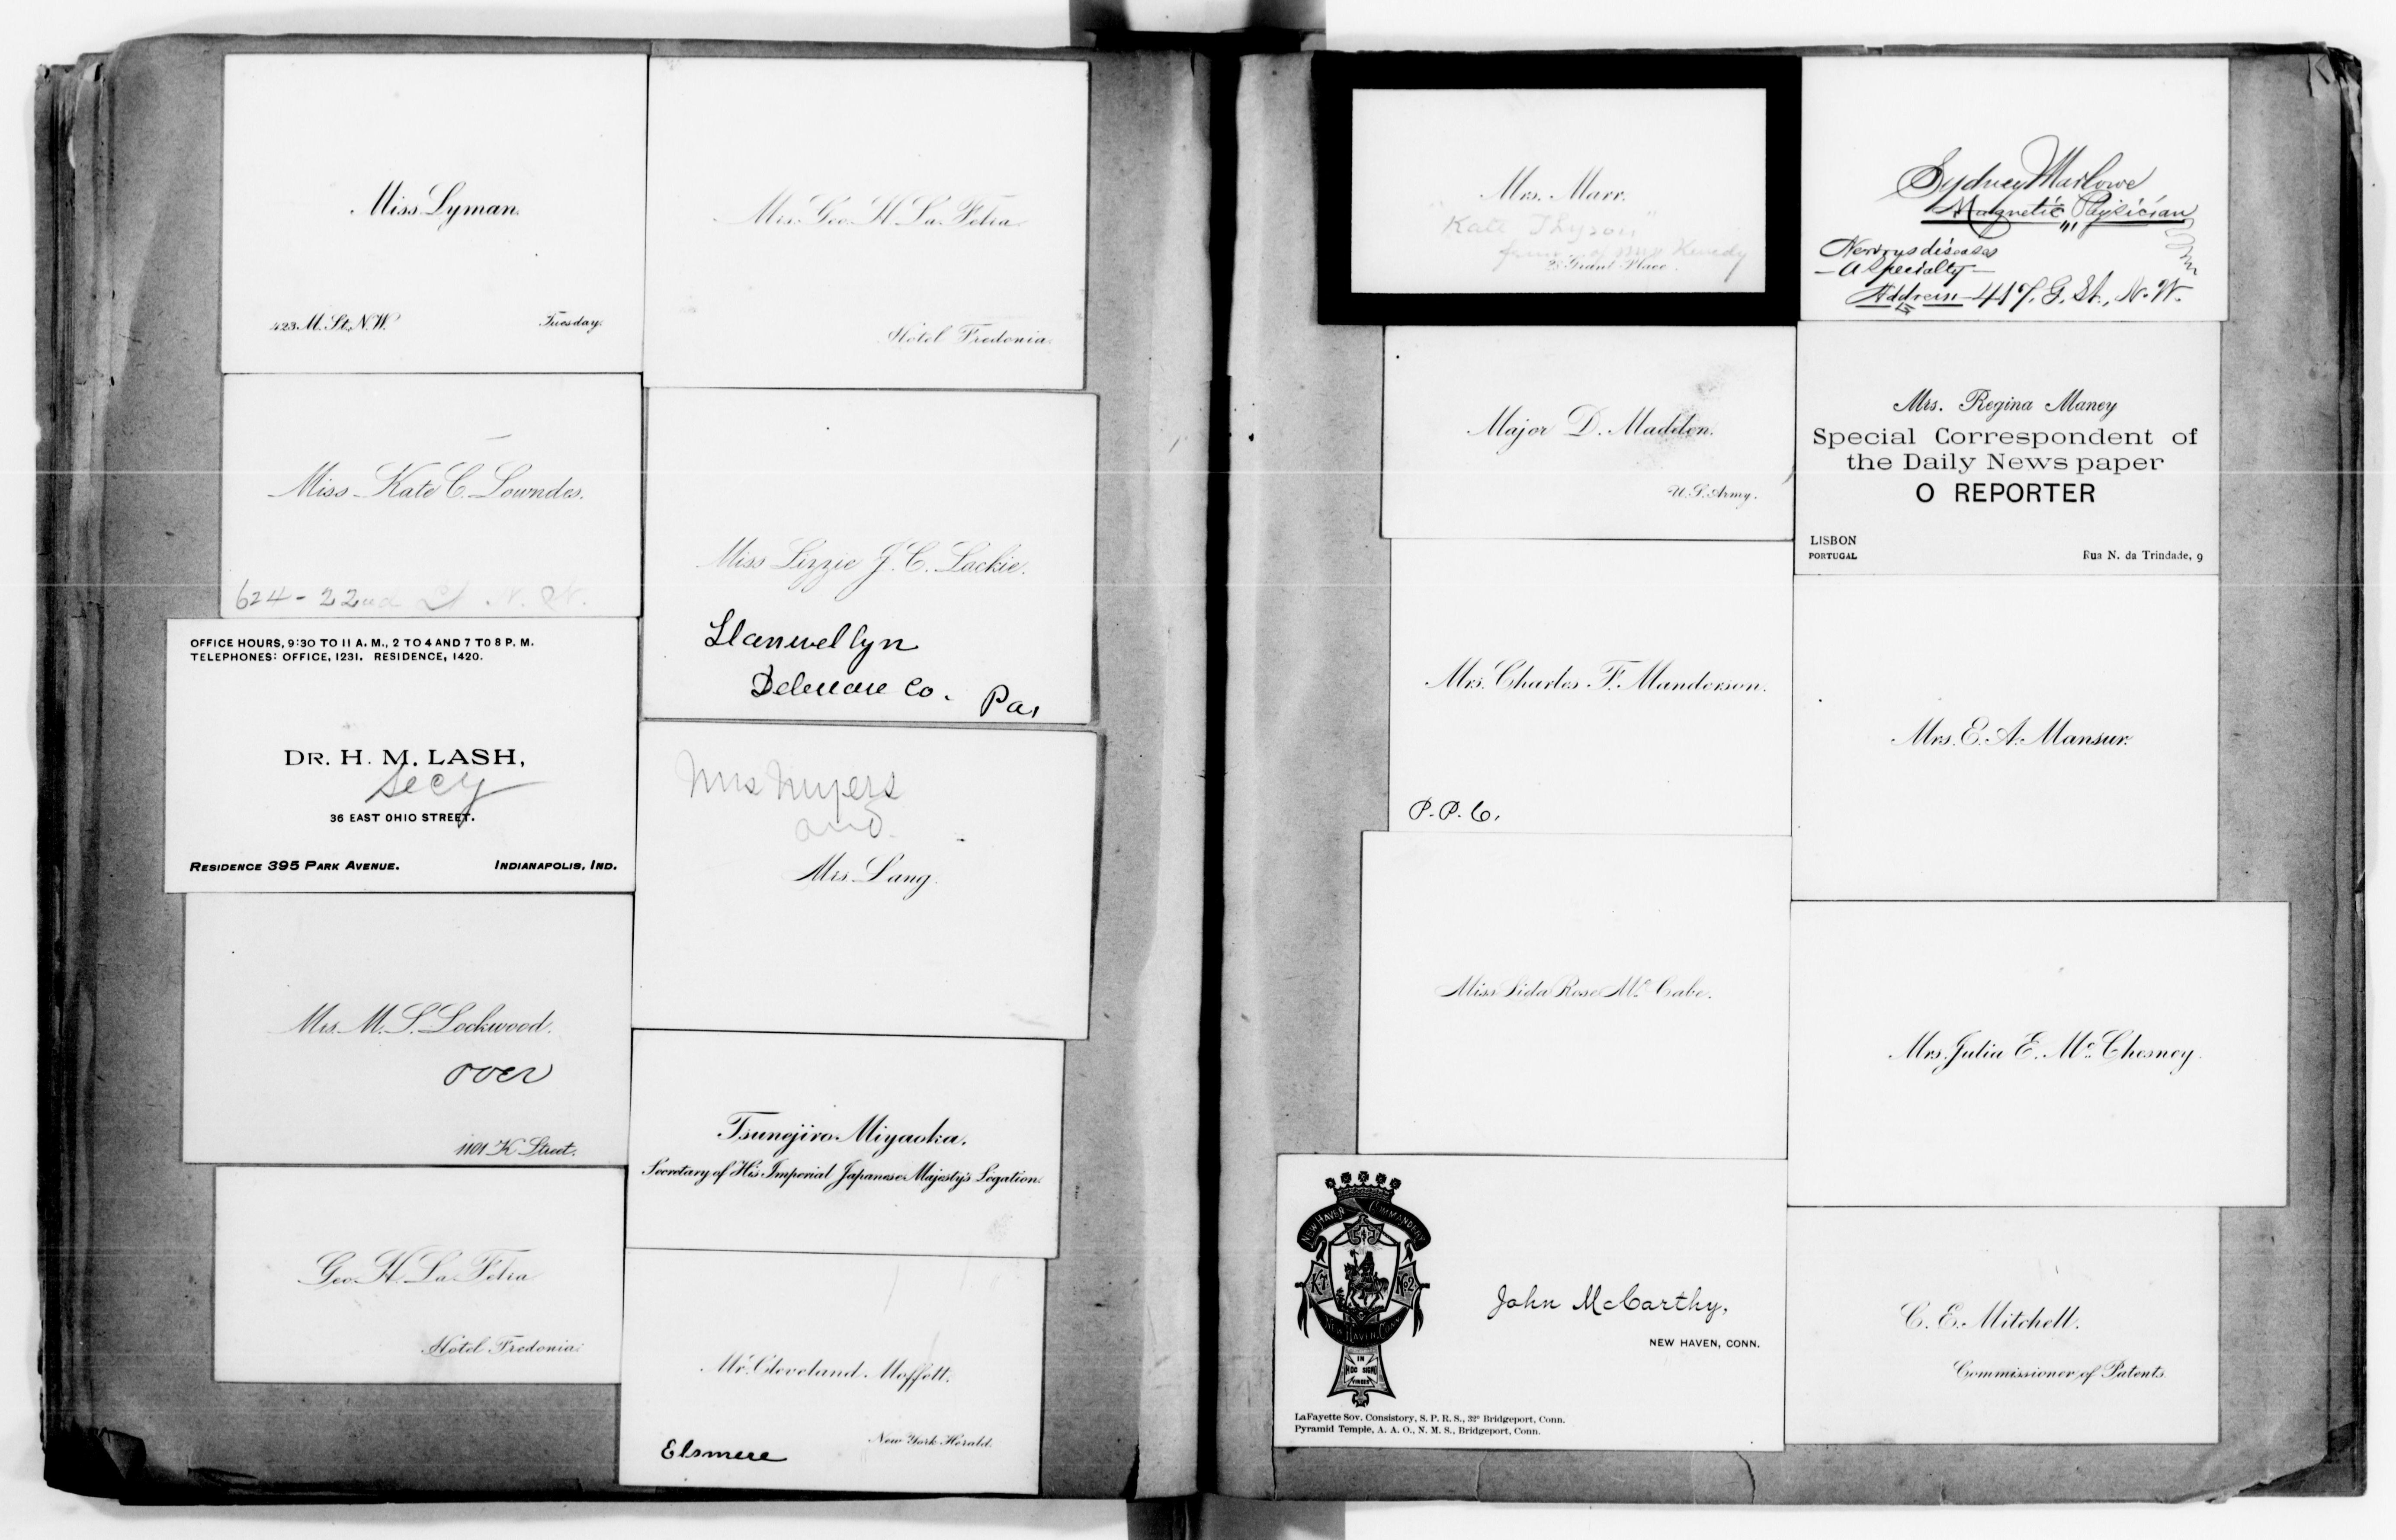 Miss Lyman.
423 M. St. N.W.
Tuesday.
Miss Kate C. Lowndes.
624 - 22nd St N. W.
OFFICE HOURS, 9:30 TO 11 A. M., 2 TO 4 AND 7 TO 8 P. M.
TELEPHONES: OFFICE, 1231. RESIDENCE, 1420.
DR. H. M. LASH,
Secy
36 EAST OHIO STREET.
RESIDENCE 395 PARK AVENUE.
INDIANAPOLIS, IND.
Mrs. M. S. Lockwood.
over
1101 K Street.
Geo. H. La Fetra
Hotel Fredonia.
Mrs. Geo. H. La Fetra
Hotel Fredonia.
Miss Lizzie J. C. Lackie.
Llanwellyn
Delaware Co. Pa.
Mrs Myers
and
Mrs. Lang.
Tsunejiro Miyaoka.
Secretary of His Imperial Japanese Majesty's Legation.
Mr. Cleveland Moffett.
New York Herald.
Elsmere
Mrs. Marr.
"Kate Thyson"
of Miss Kenedy
Grant Place.
Major D. Madden.
U. S. Army.
Mrs. Charles F. Manderson.
P. P. C.
Miss Lida Rose McCabe.
NEW HAVEN COMMANDERY
K.T. No2.
NEW HAVEN, CONN.
IN
HOC SIGNO
VINCES
John McCarthy,
NEW HAVEN, CONN.
LaFayette Sov. Consistory, S. P. R. S., 32° Bridgeport, Conn.
Pyramid Temple, A. A. O., N. M. S., Bridgeport, Conn.
Sydney Marlowe
Magnetic Physician
Nervous diseases
- a specialty -
Address 417. G. St., N. W.
Mrs. Regina Maney
Special Correspondent of
the Daily News paper
O REPORTER
LISBON
PORTUGAL
Rua N. da Trindade, 9
Mrs. E. A. Mansur.
Mrs. Julia E. McChesney.
C. E. Mitchell.
Commissioner of Patents.